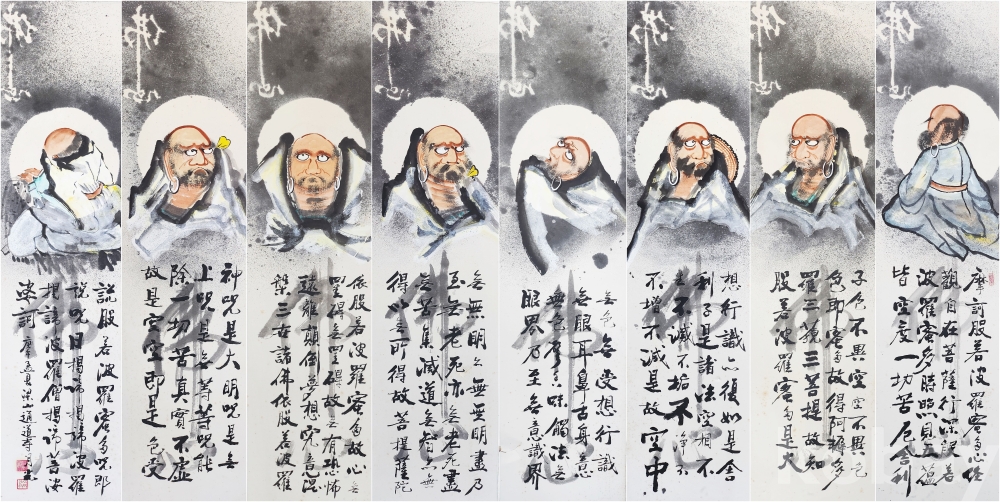 佛心
佛心
佛心
佛心
佛心
佛心
佛心
佛心
摩訶般若波羅密多心經
觀自在菩薩行深般若
波羅密多時照見五蘊
皆空度一切苦厄舍利
子色不異空空不異色
色即密多故得阿耨多
羅三藐三菩提故知
般若波羅密多是大
想行識亦復如是舍
利子是諸法空相不
生不滅不垢不淨不
不增不減是故空中
無色無受想行識
無眼耳鼻舌身意
無色聲香味觸法無
眼界乃至無意識界
無無明亦無無明盡乃
至無老死亦無老死盡
無苦集滅道無智亦無
得以無所得故菩提薩陀
依般若波羅密多故心無
罣碍無罣碍故無有恐怖
遠離顛倒夢想究竟涅
槃三世諸佛依般若波羅
神呪是大明呪是無
上呪是無等等呪能
除一切苦真實不虛
故是空空即是色受
說般若波羅密多呪即
說呪曰揭諦揭諦波羅
揭諦波羅僧揭諦菩提
娑訶